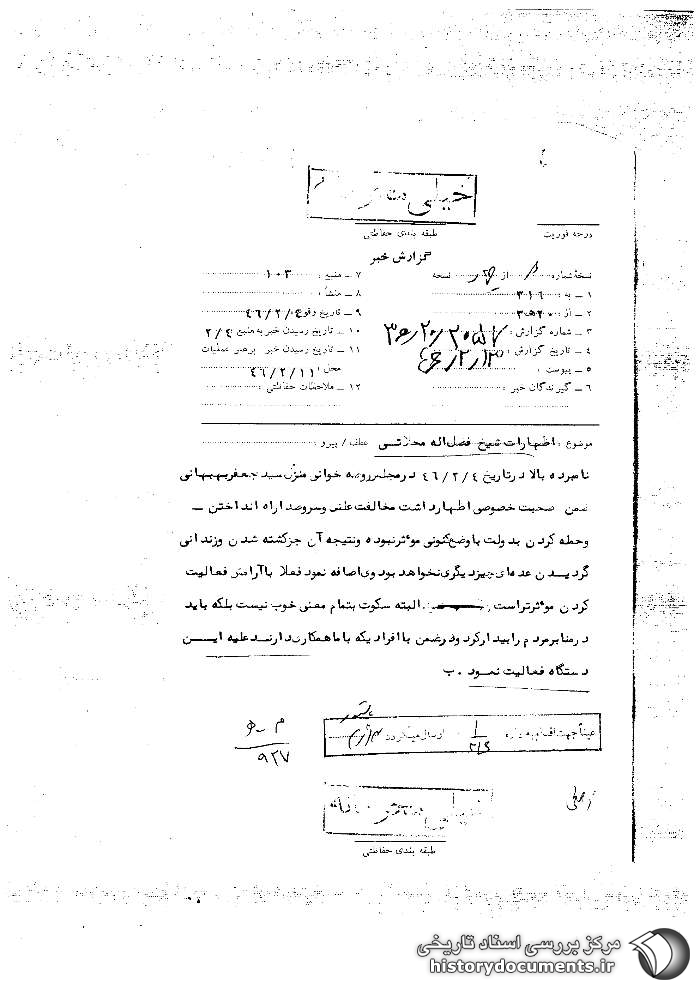 خیلی محرمانه
طبقه بندی حفاظتی
درجه فوریت
گزارش خبر
نسخه شماره از نسخه
۱ ـ به : ۳۱۶
۲ ـ از : ۲۰ ه‍ ۳
۳ ـ شماره گزارش :
۴ ـ تاریخ گزارش :
۵ ـ پیوست :
۶ ـ گیرندگان خبر :
۷ ـ منبع : ۱۰۳
۸ ـ منشأ :
۹ ـ تاریخ وقوع : ۴۶/۲/۴
۱۰ ـ تاریخ رسیدن خبر به منبع : ۲/۴
۱۱ ـ تاریخ رسیدن خبر برهبر عملیات
محل : ۴۶/۲/۱۱
۱۲ ـ ملاحظات حفاظتی :
موضوع : اظهارات شیخ فضل اله محلاتی عطف / پیرو :
نامبرده بالا در تاریخ ۴۶/۲/۴ در مجلس روضه خوانی منزل سید جعفر بهبهانی
ضمن صحبت خصوصی اظهار داشت مخالفت علنی و سروصدا راه انداختن ـ
وحمله کردن بدولت با وضع کنونی موثر نبوده و نتیجه آن جز کشته شدن و زندانی
گردیدن عده ای چیز دیگری نخواهد بود وی اضافه نمود فعلا با آرامش فعالیت
کردن موثرتر است البته سکوت بتمام معنی خوب نیست بلکه باید
در منابر مردم را بیدار کرد و در ضمن با افرادیکه با ما همکاری دارند علیه ایـن
دستگاه فعالیت نمود . ب
عیناً جهت اقدام به اداره ارسال میگردد
م ـ ه‍
۹۲۷
خیلی محرمانه
طبقه بندی حفاظتی
مرکز بررسی اسناد تاریخی
historydocuments.ir